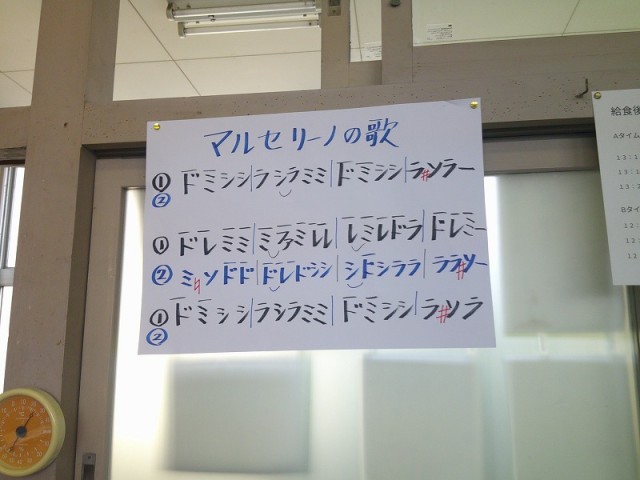 マルセリーノの歌
① ドミシシ|ラシラミミ|ドミシシ|ラ#ソラー
②
① ドレミミ|ミファミレレ|レミレドラ|ドレミー
② ミ♮ソドド|ドレドシシ|シドシララ|ララ#ソー
① ドミシシ|ラシラミミ|ドミシシ|ラ#ソラ
②
給食後
Aタイム
Bタイ